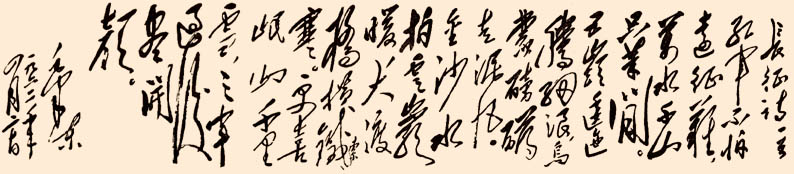 長征詩一首
紅軍不怕
遠征難，
萬水千山
只等閒。
五嶺逶迤
騰細浪，烏
蒙磅礴
走泥丸。
金沙水
拍雲崖
暖，大渡
橋橫鐵索
寒。更喜
岷山千里
雪，三軍
過後
盡開
顏。
毛澤東
一九六二年
四月廿日